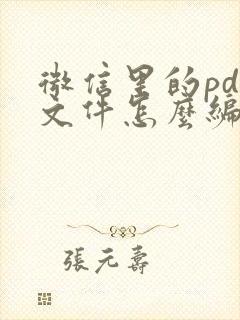 微信里的pd
文件怎麼編
張元壽